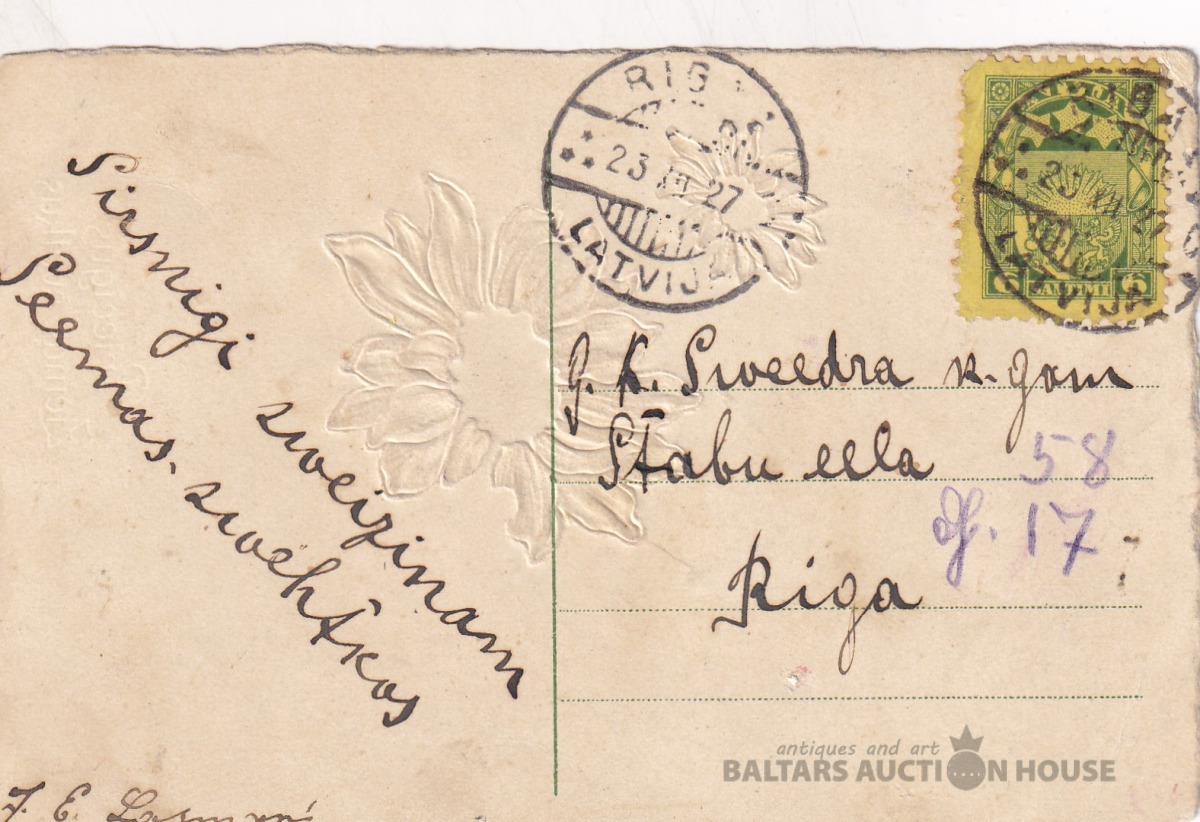 RIGA
23 XII 27
LATVIJA
LATVIJA
6 SANTIMI 6
LATVIJA
Sirsnigi sweizinam
Seemas-swehtkos
J. E.
g. K. Sweedra k-gam
Stabu eela 58
dz. 17
Riga
antiques and art
BALTARS AUCTION HOUSE